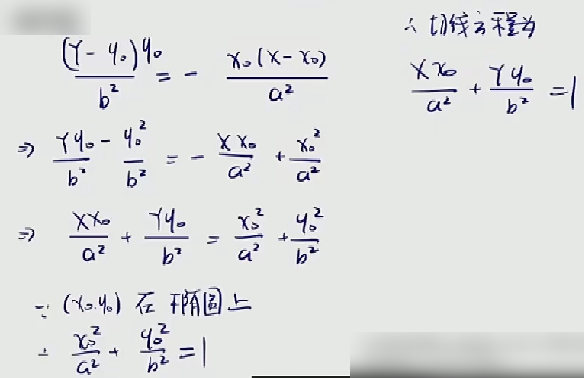 (Y-y₀)y₀/b² = - x₀(X-x₀)/a²
⇒ Yy₀/b² - y₀²/b² = - Xx₀/a² + x₀²/a²
⇒ Xx₀/a² + Yy₀/b² = x₀²/a² + y₀²/b²
∵ (x₀.y₀) 在椭圆上
∴ x₀²/a² + y₀²/b² = 1
∴ 切线方程为
Xx₀/a² + Yy₀/b² = 1